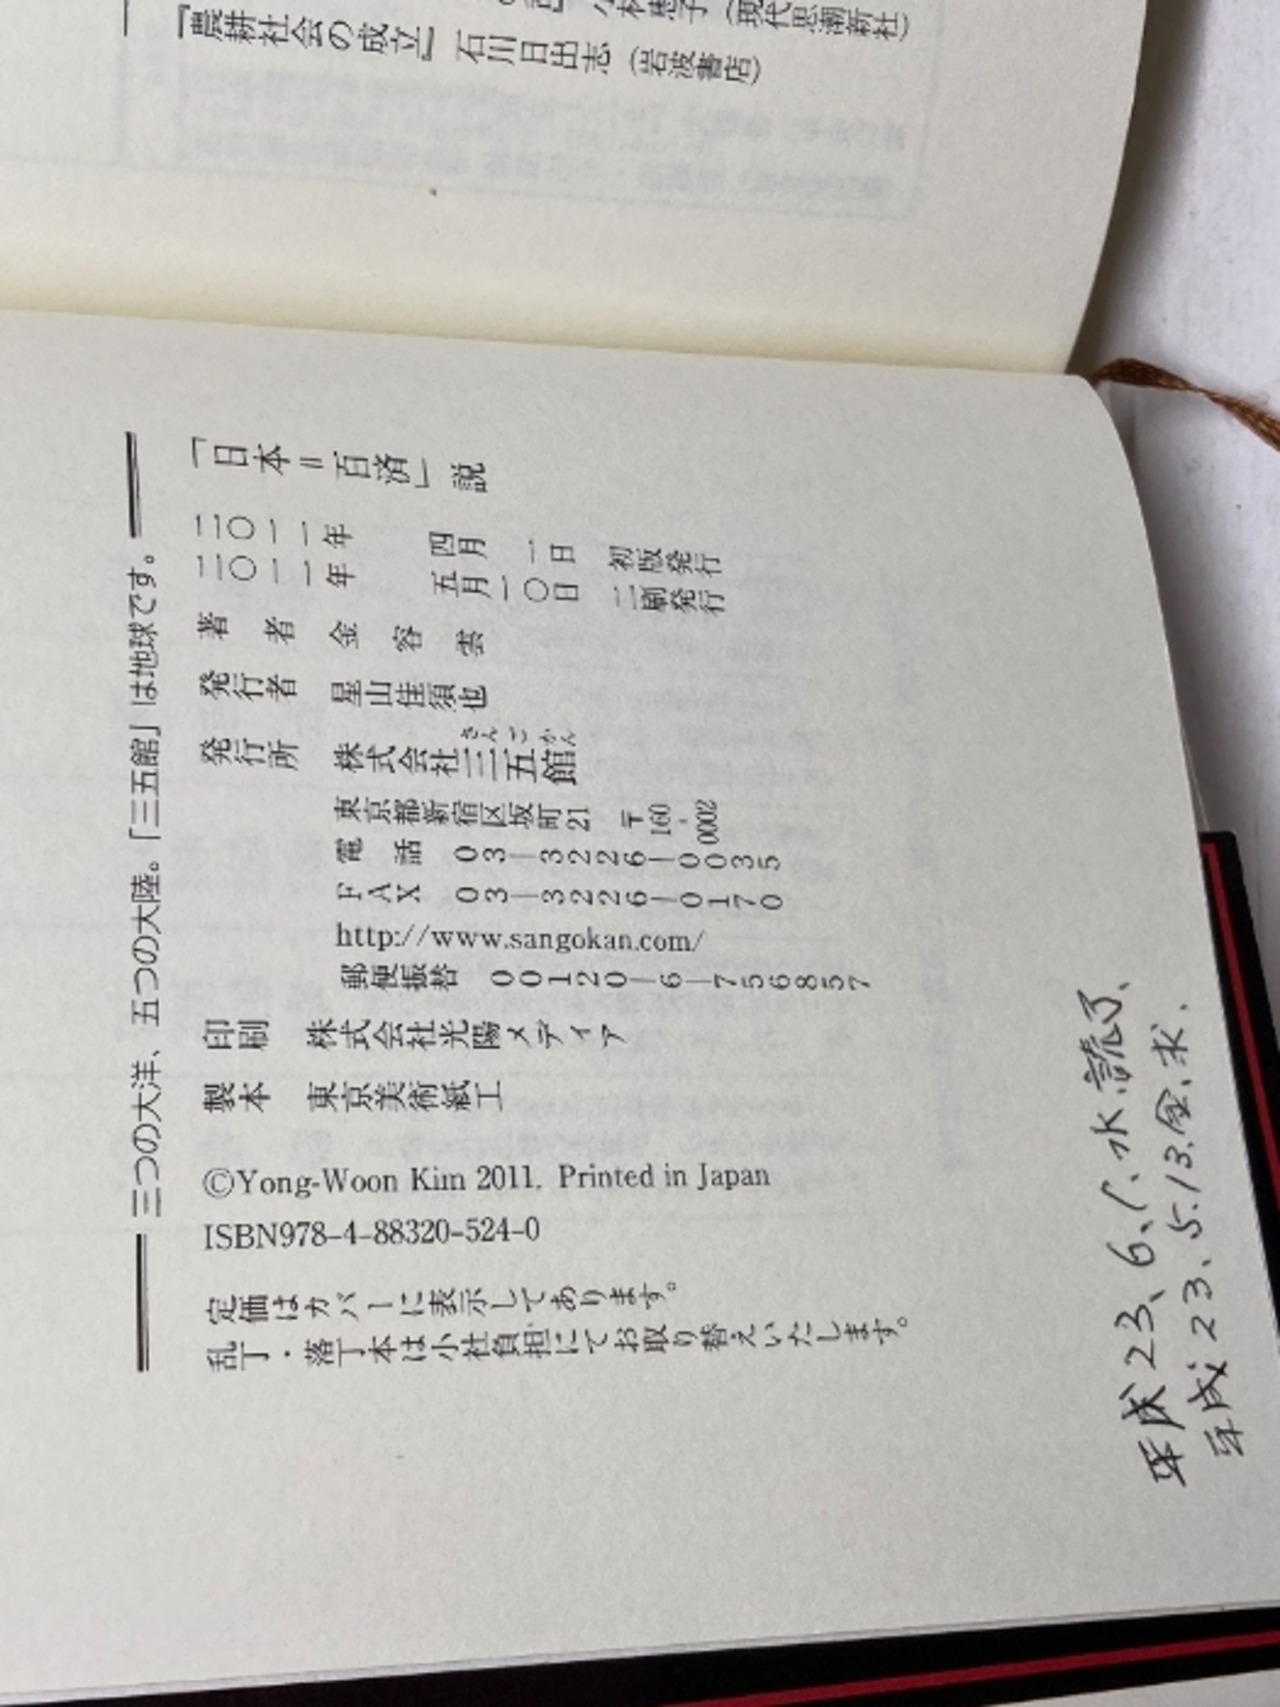 『農耕社会の成立』石川日出志（岩波書店）
三つの大洋、五つの大陸。「三五館」は地球です。
「日本＝百済」説
二〇一一年 四月 一日 初版発行
二〇一一年 五月一〇日 二刷発行
著者 金容雲
発行者 星山佳須也
さんごかん
発行所 株式会社三五館
東京都新宿区坂町21 〒160-0002
電話 03―3226―0035
FAX 03―3226―0170
http://www.sangokan.com/
郵便振替 00120―6―756857
印刷 株式会社光陽メディア
製本 東京美術紙工
©Yong-Woon Kim 2011. Printed in Japan
ISBN978-4-88320-524-0
定価はカバーに表示してあります。
乱丁・落丁本は小社負担にてお取り替えいたします。
平成23、6、1、水、読了、
平成23、5.13.金、求.